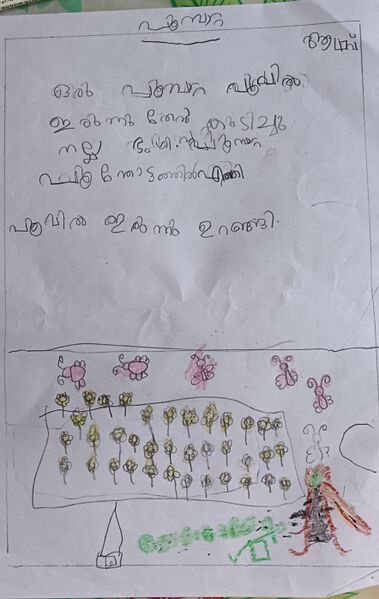 പൂമ്പാറ്റ
ഒരു പൂമ്പാറ്റ പൂവിൽ
ഇരുന്നു തേൻ കുടിച്ചു.
നല്ല ഭംഗി
തോട്ടത്തിൽ എത്തി
പൂവിൽ ഇരുന്നു ഉറങ്ങി.